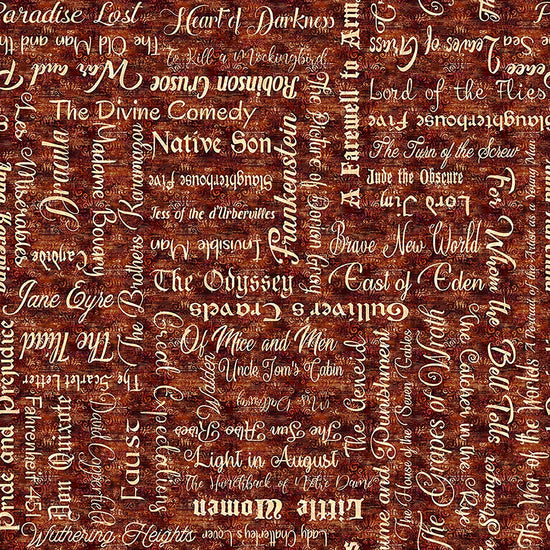 Paradise Lost
Heart of Darkness
The Old Man and the Sea
To Kill a Mockingbird
War and Peace
Robinson Crusoe
A Farewell to Arms
Leaves of Grass
Lord of the Flies
Slaughterhouse Five
The Turn of the Screw
Jude the Obscure
Lord Jim
The Divine Comedy
Native Son
Slaughterhouse Five
Tess of the d'Urbervilles
Invisible Man
The Odyssey
Gulliver's Travels
Frankenstein
The Picture of Dorian Gray
Brave New World
East of Eden
Les Miserables
Dracula
Madame Bovary
The Brothers Karamazov
Candide
Jane Eyre
The Iliad
The Scarlet Letter
Pride and Prejudice
Fahrenheit 451
Don Quixote
David Copperfield
Faust
Great Expectations
Wuthering Heights
Of Mice and Men
Uncle Tom's Cabin
Walden
The Sun Also Rises
Light in August
The Hunchback of Notre Dame
Little Women
Lady Chatterley's Lover
The Aeneid
The House of the Seven Gables
The Grapes of Wrath
The Catcher in the Rye
For Whom the Bell Tolls
A Portrait of the Artist as a Young Man